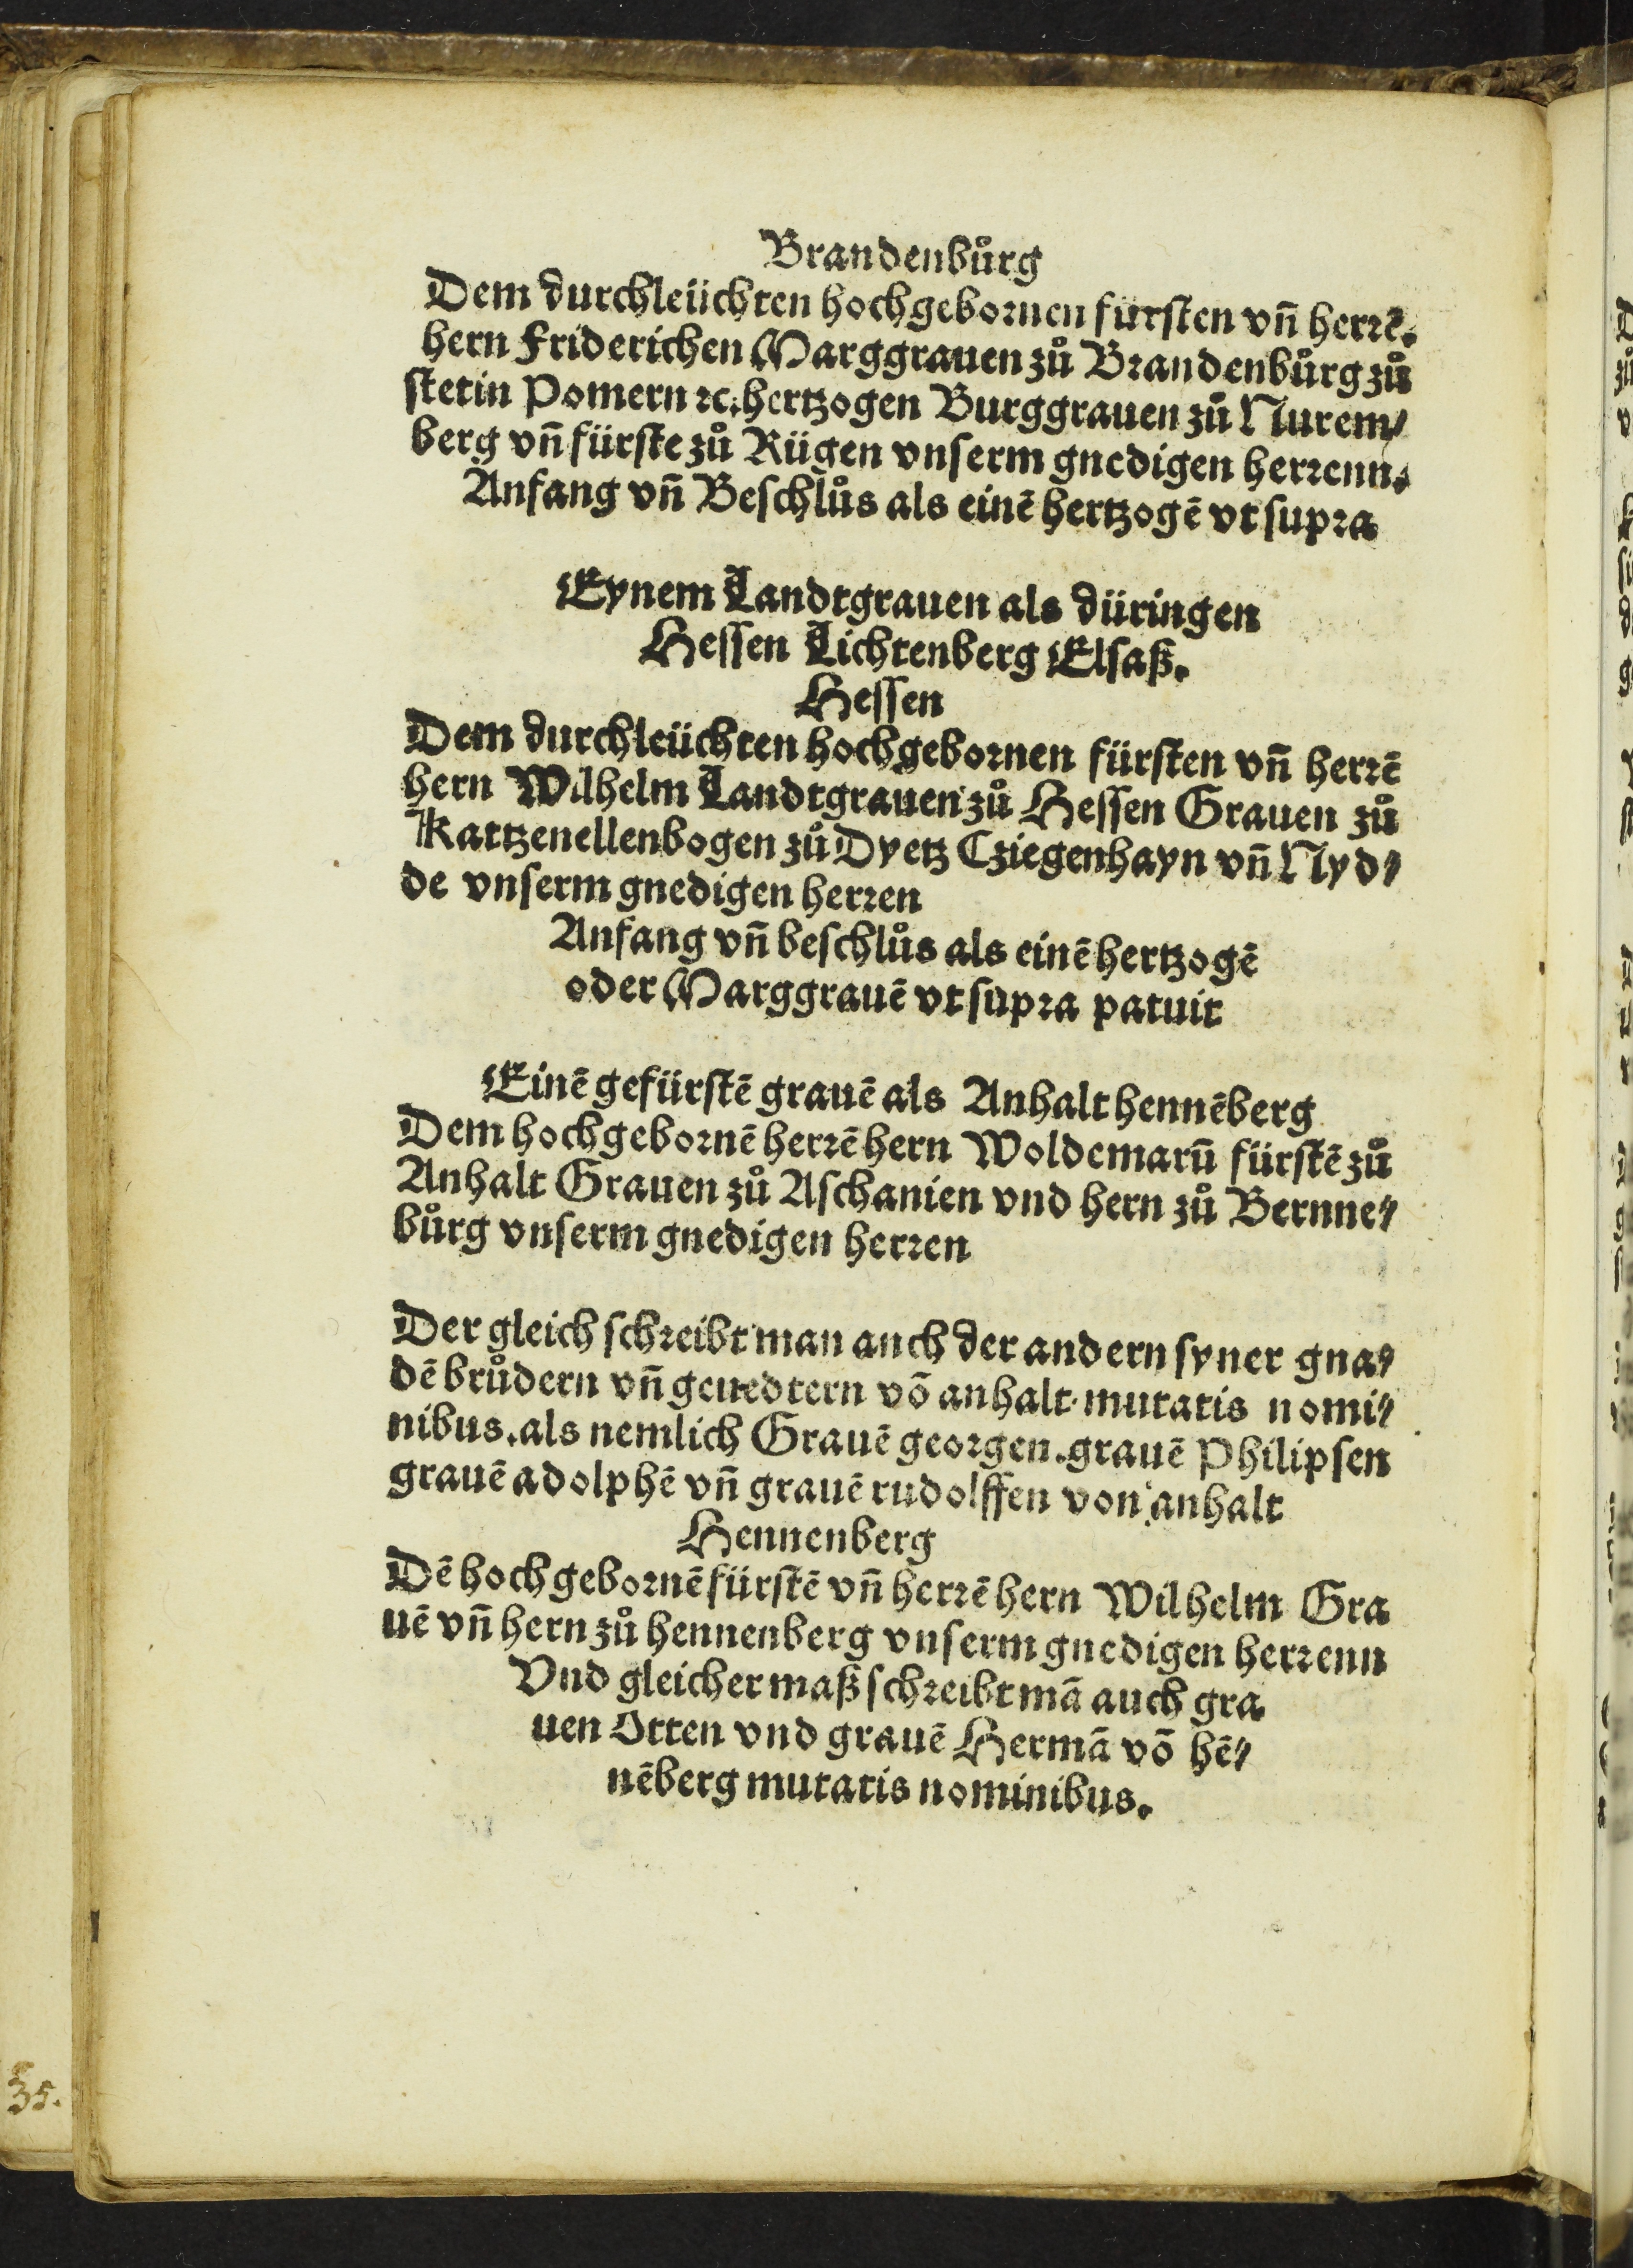 Brandenbůrg
Dem durchleüchten hochgebornen fürsten vñ herrē.
hern Friderichen Marggrauen zů Brandenbůrg zů
stetin Pomern ⁊c. hertzogen Burggrauen zů Nurem⸗
berg vñ fürste zů Rügen vnserm gnedigen herrenn.
Anfang vñ Beschlůs als einē hertzogē vt supra
Eynem Landtgrauen als düringen
Hessen Lichtenberg Elsaß.
Hessen
Dem durchleüchten hochgebornen fürsten vñ herrē
hern Wilhelm Landtgrauen zů Hessen Grauen zů
Kattzenellenbogen zů Dyetz Cziegenhayn vñ Nyd⸗
de vnserm gnedigen herren
Anfang vñ beschlůs als einē hertzogē
oder Marggrauē vt supra patuit
Einē gefürstē grauē als Anhalt hennēberg
Dem hochgebornē herrē hern Woldemarū fürstē zů
Anhalt Grauen zů Aschanien vnd hern zů Bernne⸗
bůrg vnserm gnedigen herren
Der gleich schreibt man auch der andern syner gna⸗
dē brůdern vñ geuedtern vō anhalt. mutatis nomi⸗
nibus. als nemlich Grauē georgen. grauē Philipsen
grauē adolphē vñ grauē rudolffen von anhalt
Hennenberg
Dē hochgebornē fürstē vñ herrē hern Wilhelm Gra
uē vñ hern zů hennenberg vnserm gnedigen herrenn
Vnd gleicher maß schreibt mā auch gra
uen Otten vnd grauē Hermā vō hē⸗
nēberg mutatis nominibus.
35.